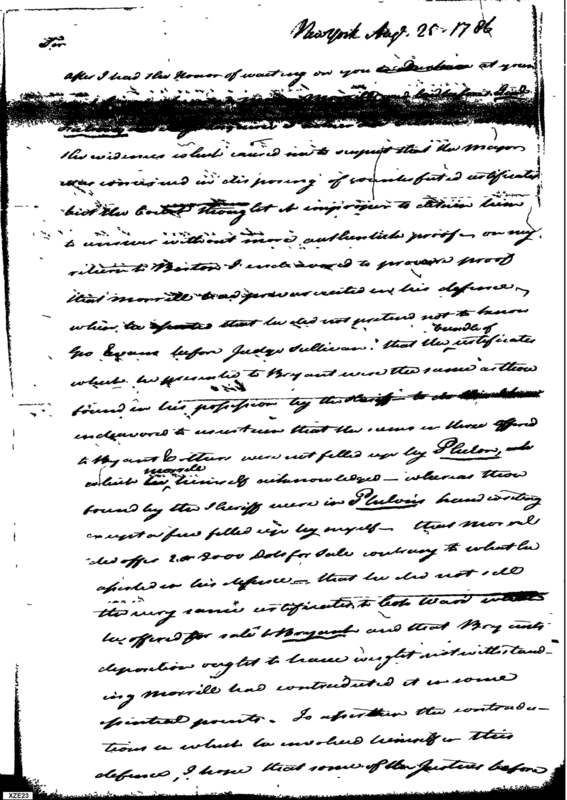 New York Augt. 25 - 1786
Sir
After I had the Honor of waiting on you at your
the evidence which caused me to suspect that the Mayor
was concerned in disposing of counterfeited certificates
but the Court thought it improper to detain him
to answer without more authentick proof - on my
return to Boston I endeavored to procure proof
that Morrill had prevaricated in his defence,
when he asserted that he did not pretend not to know
Geo Evans before Judge Sullivan: that the bundle of certificates
which he presented to Bryant were the same as those
found in his possession by the Sheriff
endeavored to ascertain that the sums in those offered
to Bryant & others were not filled up by Phelon,
which Morrill himself acknowledged - whereas those
found by the Sheriff were in Phelon's hand writing
except a few filled up by myself - that Morril
did offer 2 or 3000 Dols for Sale contrary to what he
asserted in his defence - that he did not sell
the very same certificates to Ward
he offered for sale to Bryant and that Bryants
deposition ought to have weight notwithstand-
ing Morrill had contradicted it in some
essential points. To ascertain the contradic-
tions in which he involved himself in this
defence, I hope that some of the Justices before
XZE23